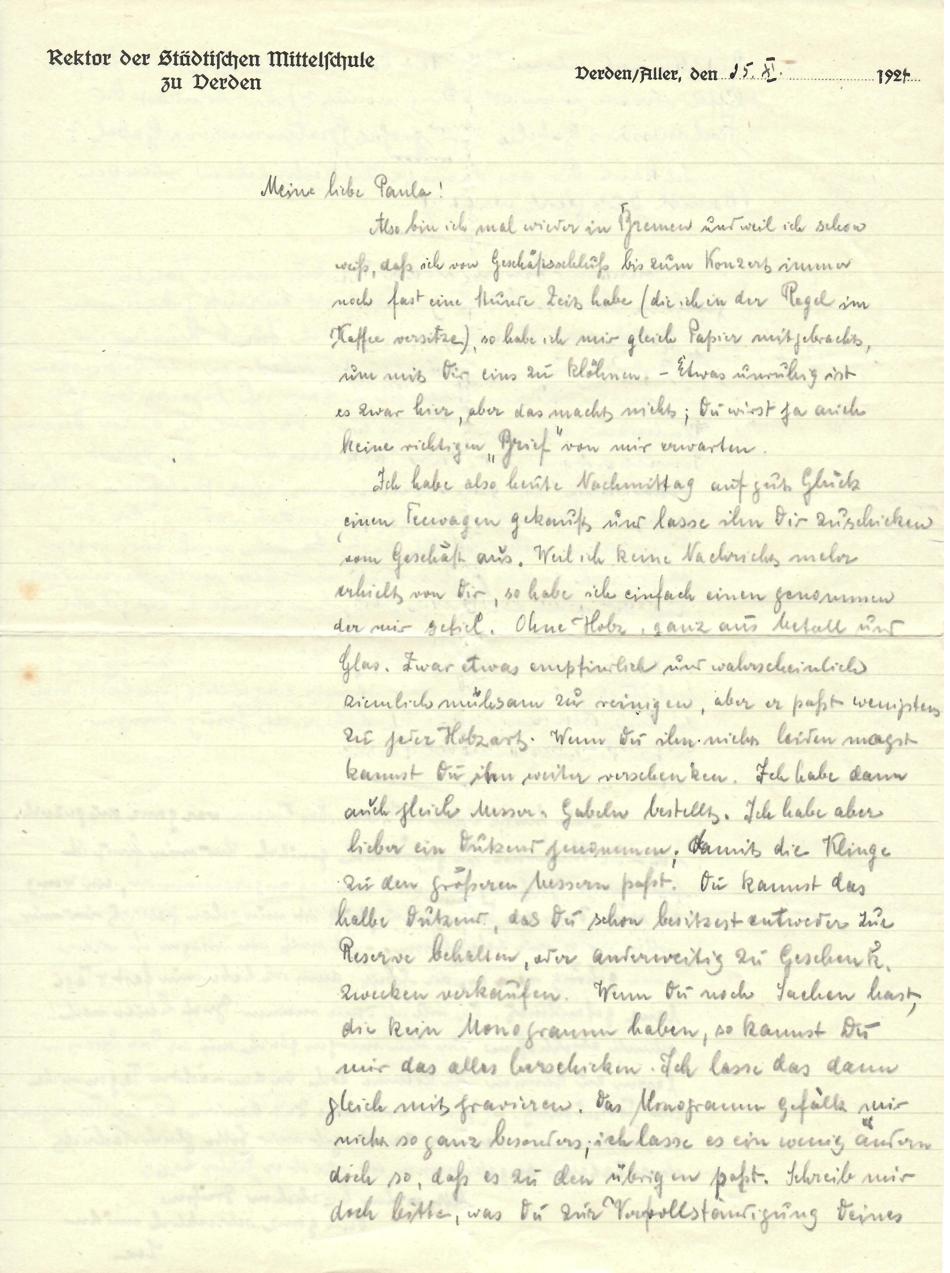 Rektor der Städtischen Mittelschule
zu Verden
Verden/Aller, den 15. XI. 192
Meine liebe Paula!
Also bin ich mal wieder in Bremen und weil ich schon
weiß, daß ich von Geschäftsschluß bis zum Konzert immer
noch fast eine Stunde Zeit habe (die ich in der Regel im
Kaffee versitze), so habe ich mir gleich Papier mitgebracht,
um mit Dir eins zu klöhnen. – Etwas unruhig ist
es zwar hier, aber das macht nichts; Du wirst ja auch
keine richtigen „Brief" von mir erwarten.
Ich habe also heute Nachmittag auf gut Glück
einen Teewagen gekauft und lasse ihn Dir zuschicken
vom Geschäft aus. Weil ich keine Nachricht mehr
erhielt von Dir, so habe ich einfach einen genommen
der mir gefiel. Ohne Holz, ganz aus Metall und
Glas. Zwar etwas empfindlich und wahrscheinlich
ziemlich mühsam zu reinigen, aber er paßt wenigstens
zu jeder Holzart. Wenn Du ihn nicht leiden magst
kannst Du ihn weiter verschenken. Ich habe dann
auch gleich Messer u. Gabeln bestellt. Ich habe aber
lieber ein Dutzend genommen, damit die Klinge
zu den größeren Messern paßt. Du kannst das
halbe Dutzend, das Du schon besitzest entweder zur
Reserve behalten, oder anderweitig zu Geschenk-
zwecken verkaufen. Wenn Du noch Sachen hast,
die kein Monogramm haben, so kannst Du
mir das alles herschicken. Ich lasse das dann
gleich mit gravieren. Das Monogramm gefällt mir
nicht so ganz besonders; ich lasse es ein wenig ändern
doch so, daß es zu den übrigen paßt. Schreib mir
doch bitte, was Du zur Vervollständigung Deines